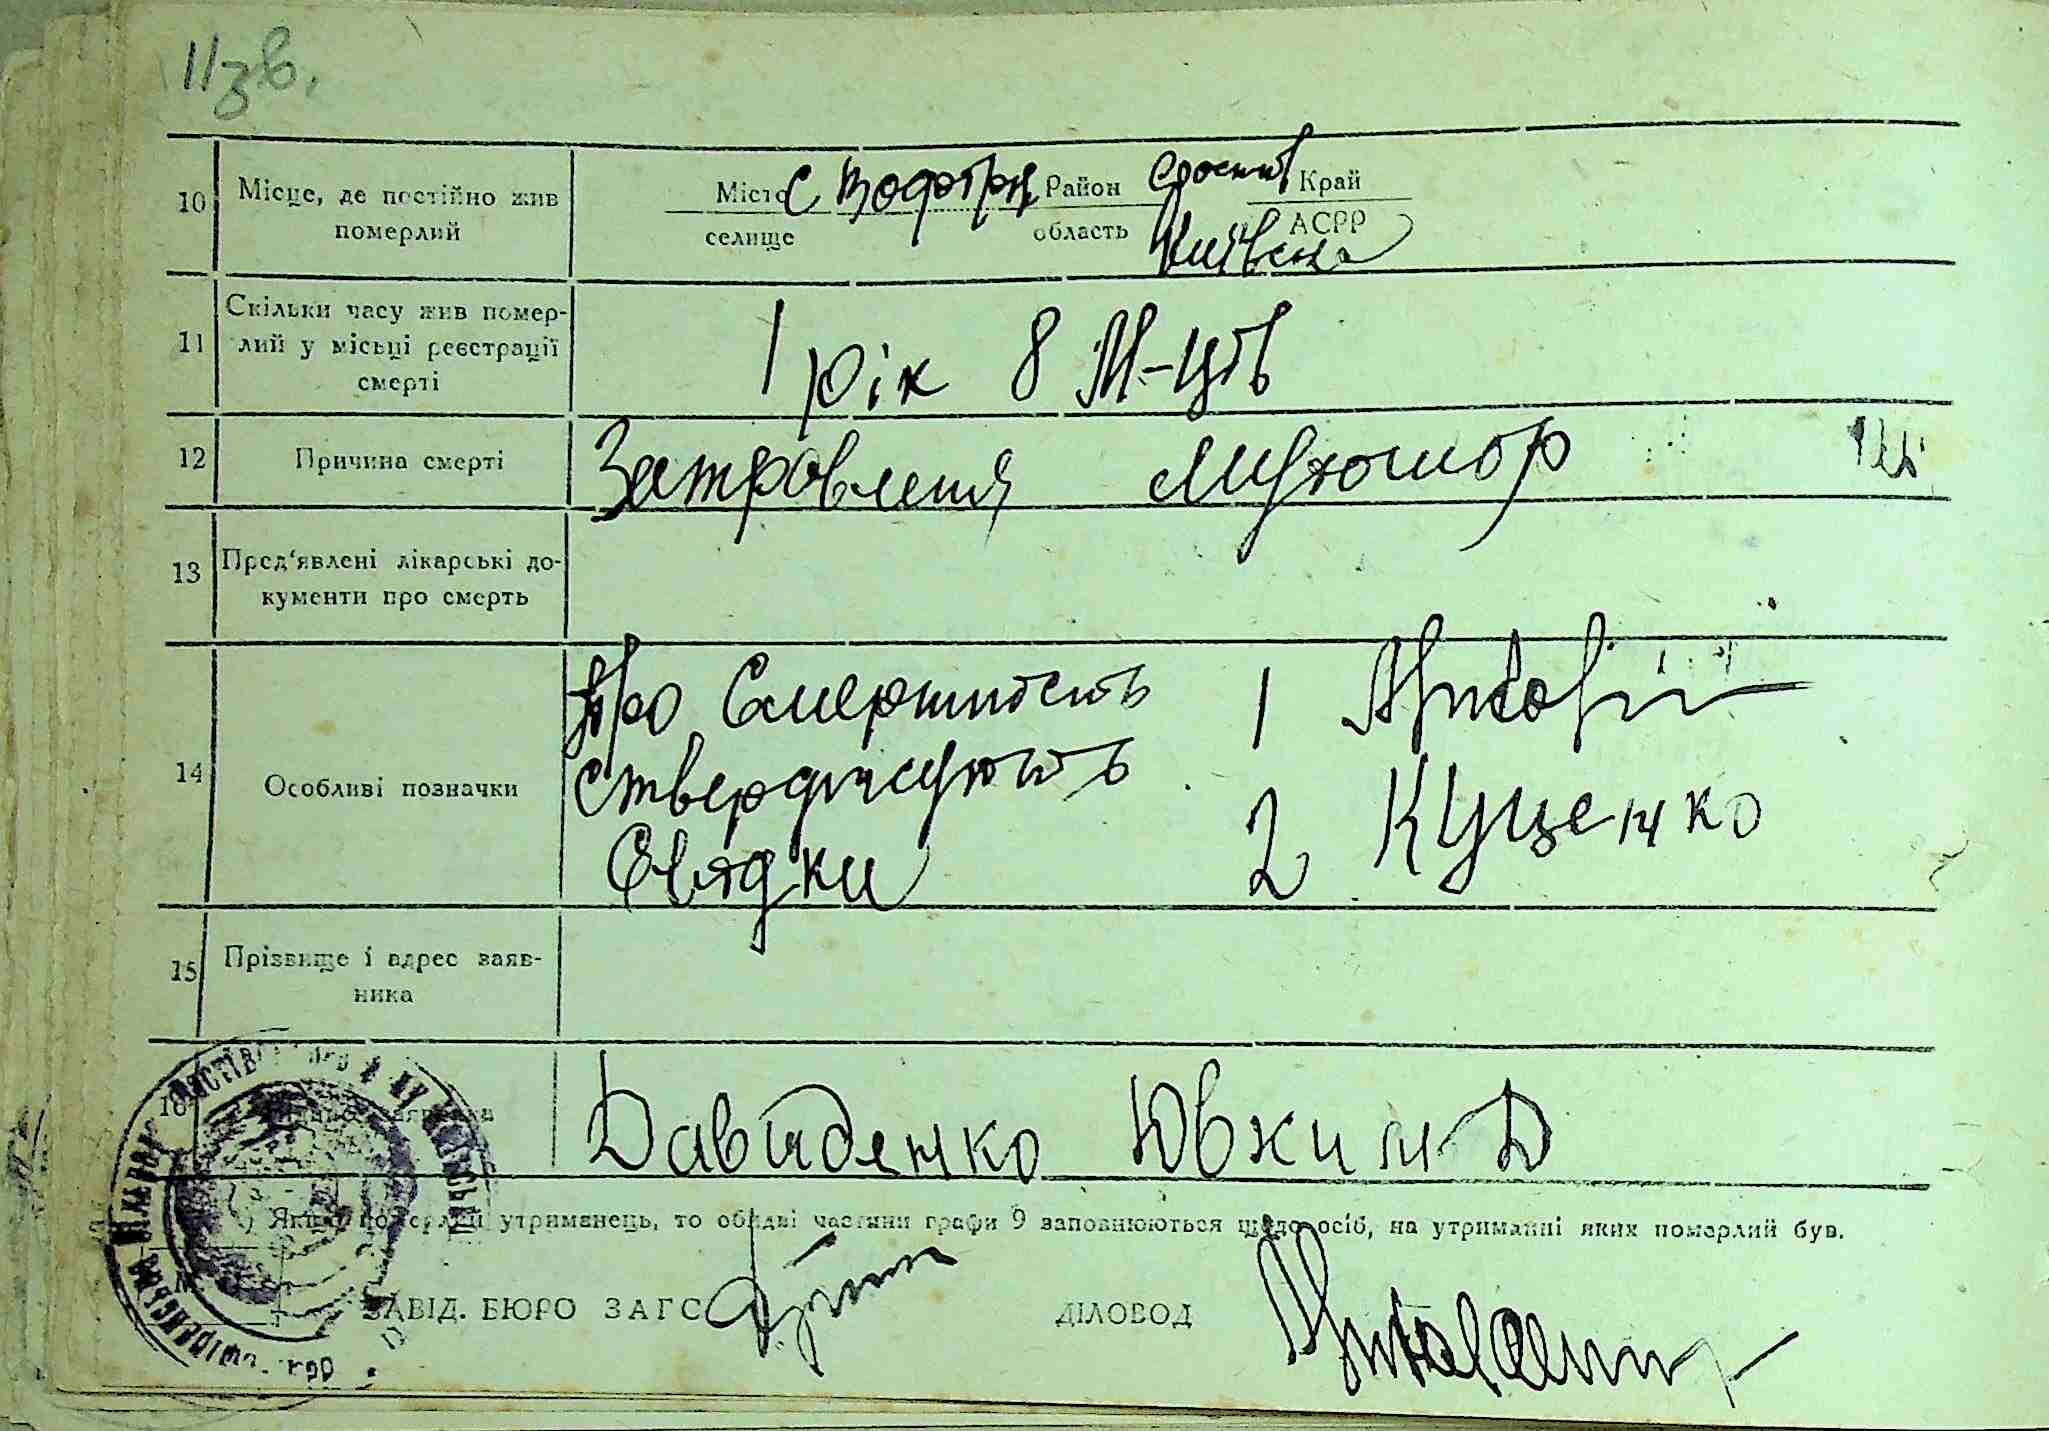 11зв.
10 Місце, де постійно жив померлий Місто с Район Край
селище область АСРР
Київська
11 Скільки часу жив помер-
лий у місьці реєстрації
смерті
1 рік 8 М-ців
12 Причина смерті Затровления мухомор
13 Пред'явлені лікарські до-
кументи про смерть
14 Особливі позначки
про Смертність 1
стверджують 2 Куценко
Свядки
15 Прізвище і адрес заяв-
ника
16 Давиденко Ювхим Д
Якщо померлий утриманець, то обидві частини графи 9 заповнюються щодо осіб, на утриманні яких померлий був.
ЗАВІД. БЮРО ЗАГС ДІЛОВОД